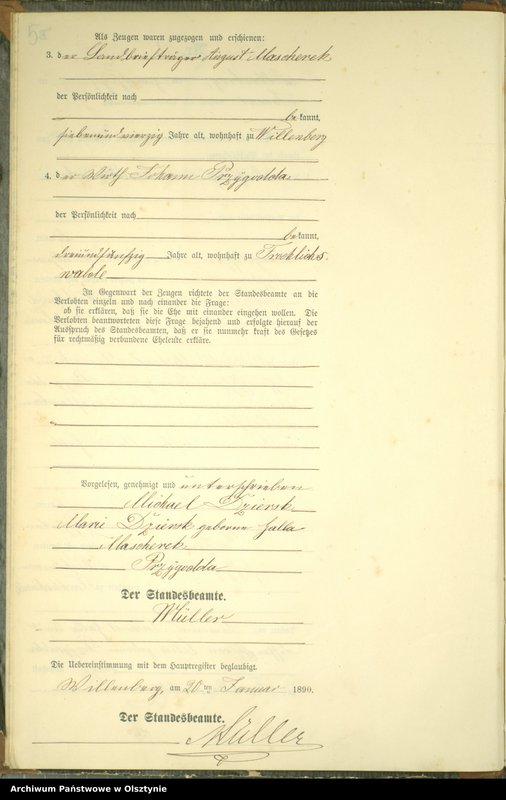 Als Zeugen waren zugezogen und erschienen:
3. der Landbriefträger August Mascherek
der Persönlichkeit nach
bekannt,
siebenundvierzig Jahre alt, wohnhaft zu Willenberg
4. der Wirth Johann Przygodda
der Persönlichkeit nach
bekannt,
dreiundfünfzig Jahre alt, wohnhaft zu Froehlichs
walde
In Gegenwart der Zeugen richtete der Standesbeamte an die
Verlobten einzeln und nach einander die Frage:
ob sie erklären, daß sie die Ehe mit einander eingehen wollen. Die
Verlobten beantworteten diese Frage bejahend und erfolgte hierauf der
Ausspruch des Standesbeamten, daß er sie nunmehr kraft des Gesetzes
für rechtmäßig verbundene Eheleute erkläre.
Vorgelesen, genehmigt und unterschrieben
Michael Dziersk
Marie Dziersk geborne Jalla
Mascherek
Przygodda
Der Standesbeamte.
Müller
Die Uebereinstimmung mit dem Hauptregister beglaubigt.
Willenberg, am 20ten Januar 1890.
Der Standesbeamte.
Müller
Archiwum Państwowe w Olsztynie